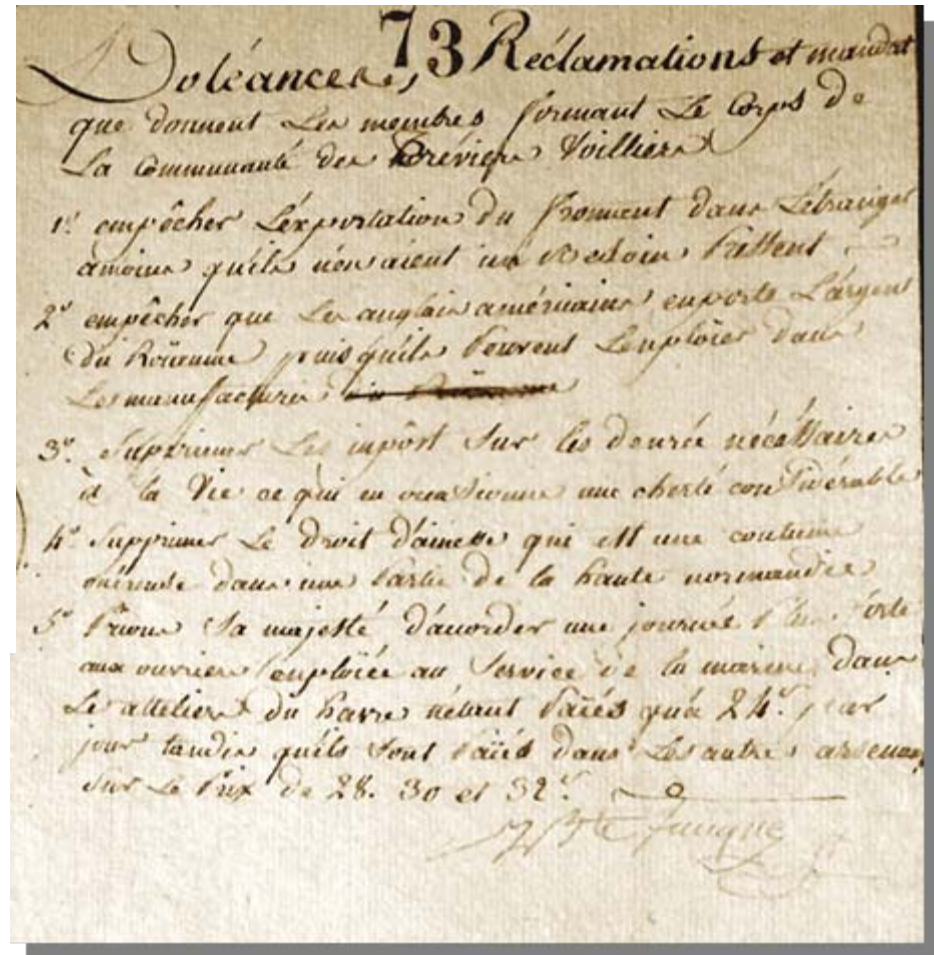 73
Doléances, Réclamations et mandat
que donnent Les membres formant Le Corps de
La Communauté des Voilliers
1º empêcher L'exportation du froment dans L'étranger
amoins quils n'en aient un Besoin Pressent
2º empêcher que Les anglais américains enporte L'argent
du Roïaume puisquils Peuvent L'enploïer dans
Les manufactures
3º Suprimer Les impôst Sur les denrée nécéssaires
à la Vie ce qui en occasionne une cherté considérable
4º Supprimer Le Droit d'ainesse qui est une coutume
dans une Partie de la haute normandie
5º Prions Sa majesté d'accorder une journée Plus forte
aux ouvriers emploïée au Service de la marine dans
Le attelier du havre n'étant Païés qu'à 24.s par
jour tandis qu'ils Sont Païés dans Les autres arsenaux
Sur Le Prix de 28. 30 et 32.s